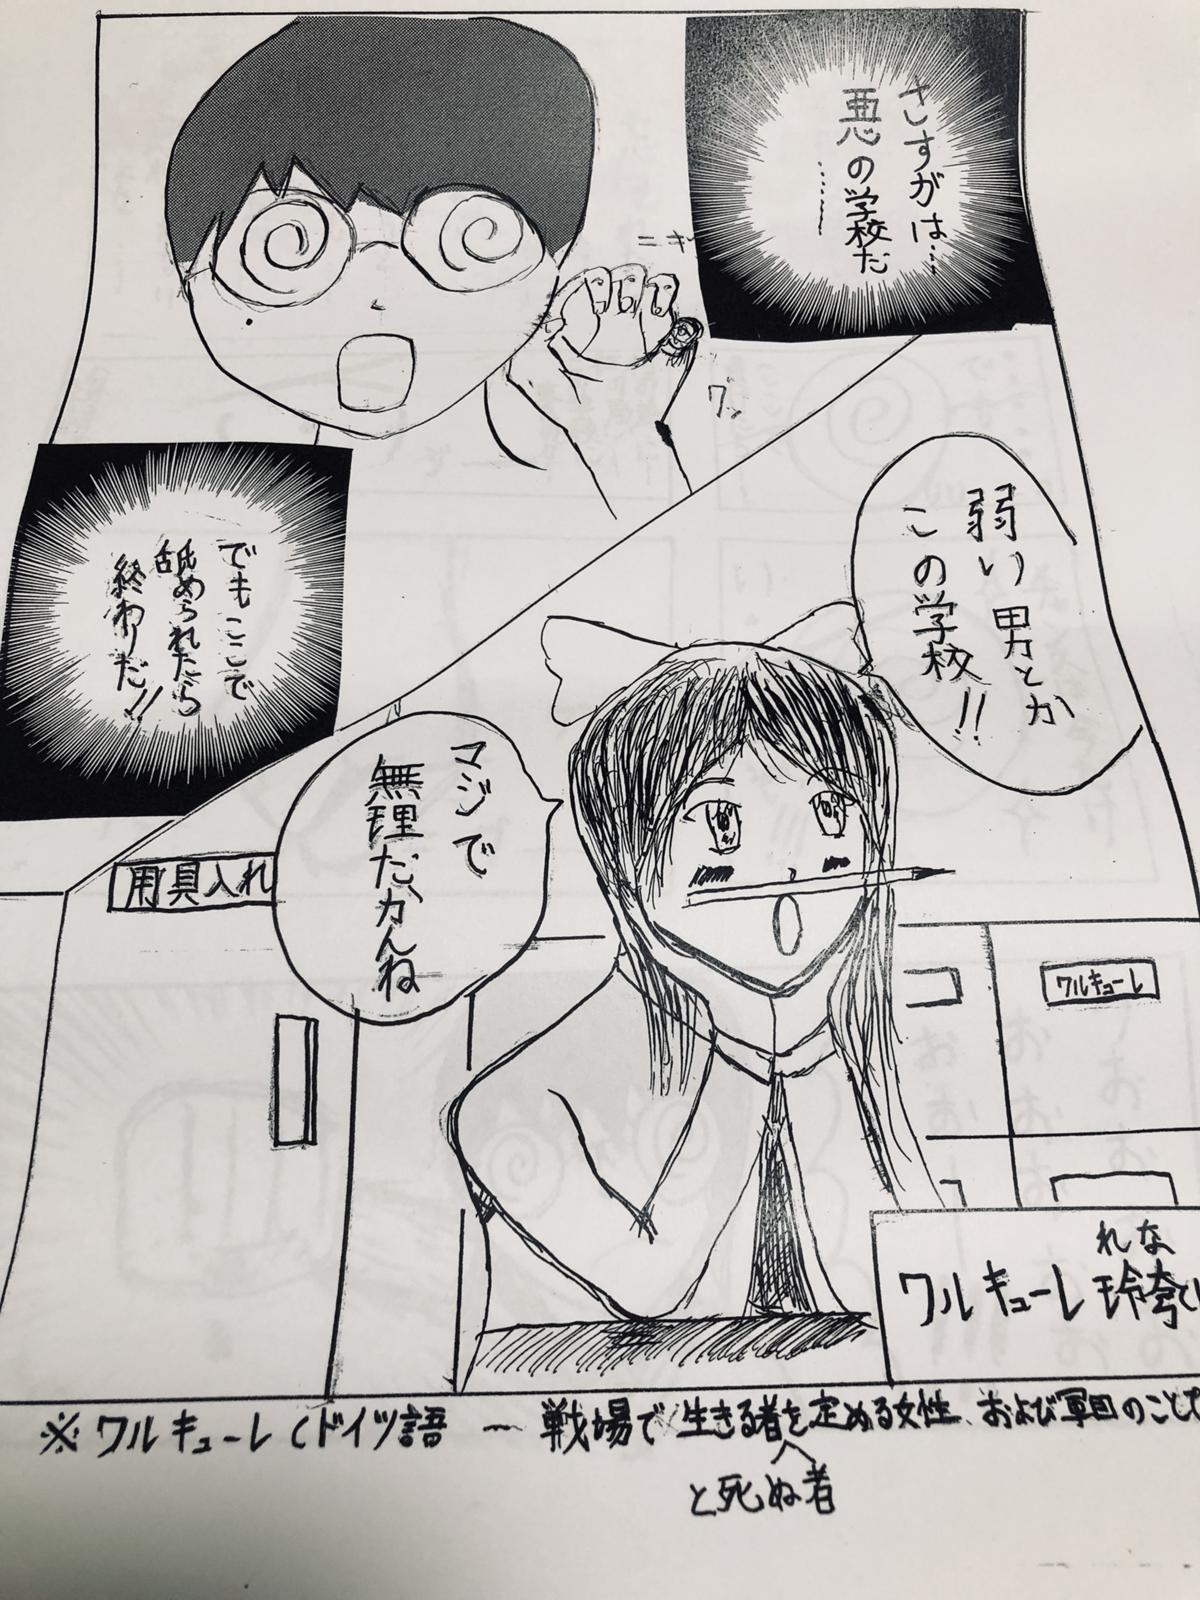 さすがは…
悪の学校だ
………
ニギ
グッ
でもここで
舐められたら
終わりだ!!
弱い男とか
この学校!!
マジで
無理だかんね
用具入れ
ワルキューレ
れな
ワルキューレ玲
※ワルキューレ(ドイツ語 ― 戦場で生きる者を定める女性、および軍団のことで
と死ぬ者